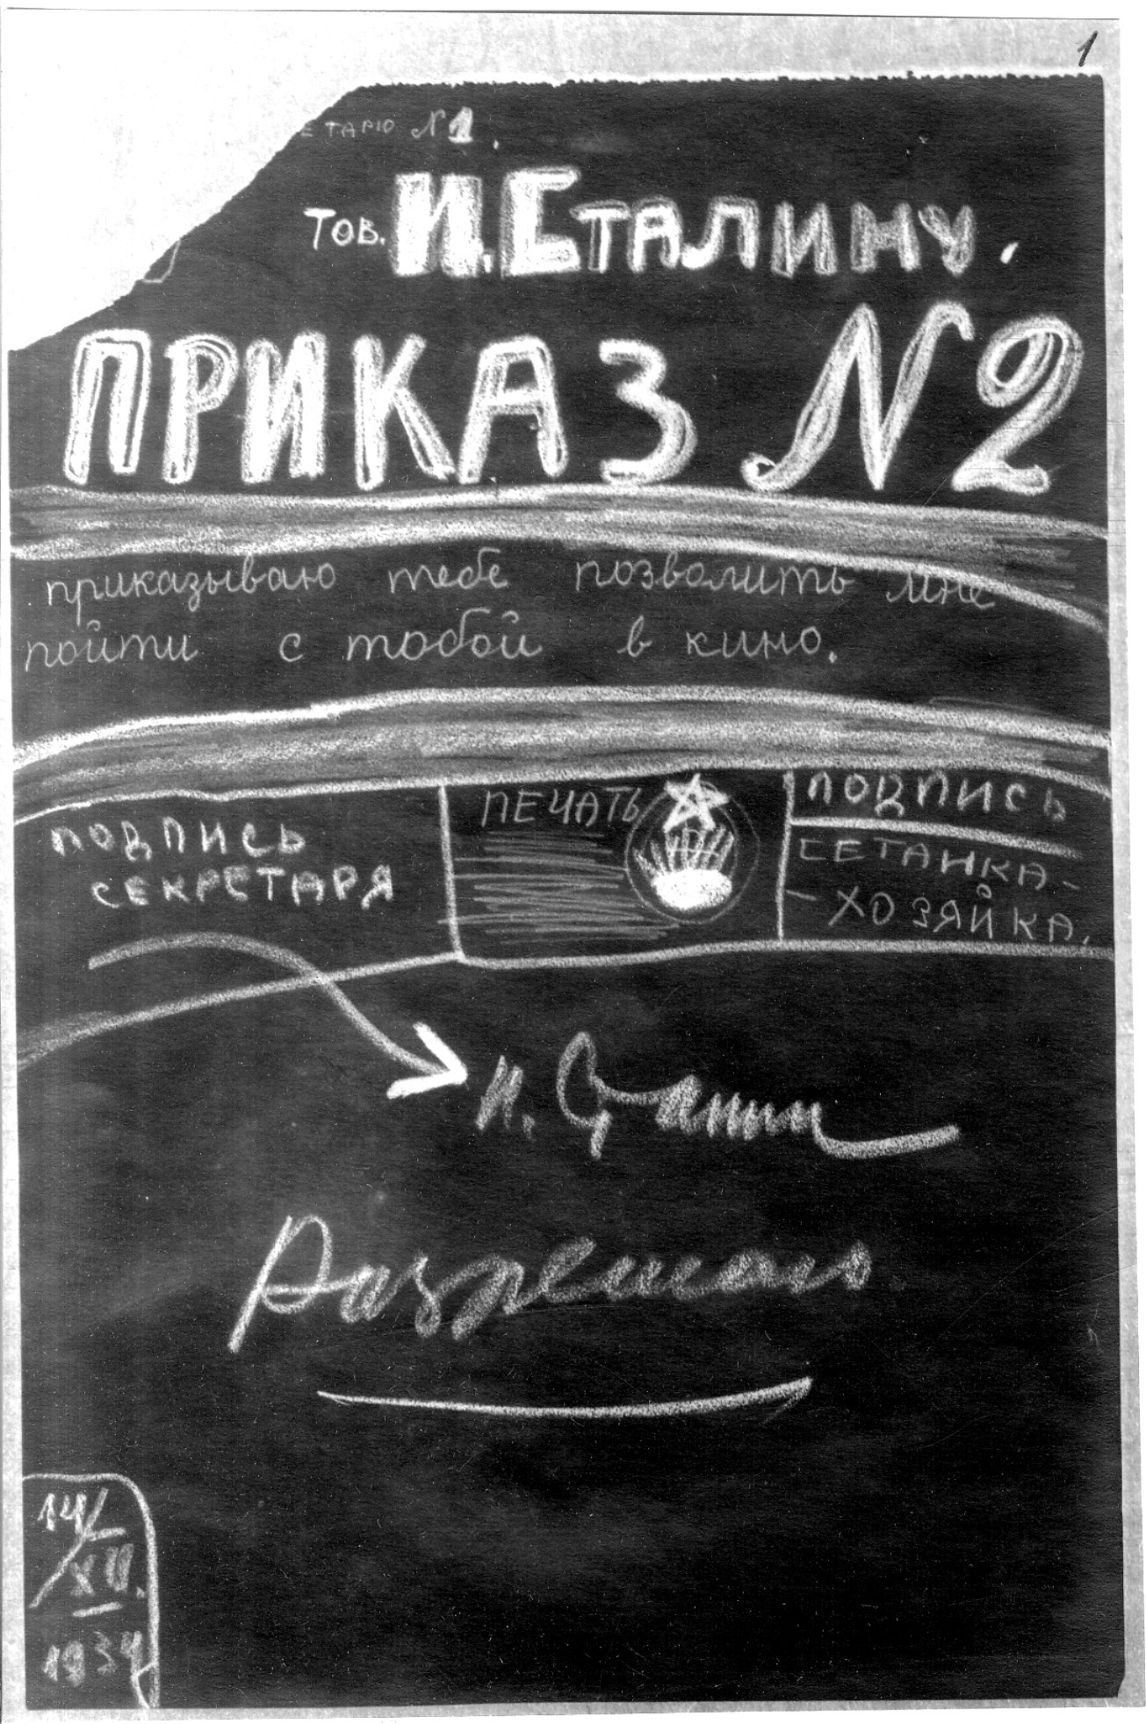 1
ЕТАРЮ N1.
Тов. И. СТАЛИНУ.
ПРИКАЗ N2
приказываю тебе позволить мне
пойти с тобой в кино.
ПОДПИСЬ
СЕКРЕТАРЯ
ПЕЧАТЬ
ПОДПИСЬ
СЕТАНКА-
-ХОЗЯЙКА.
И. Сталин
Разрешаю
14/
XII.
1934